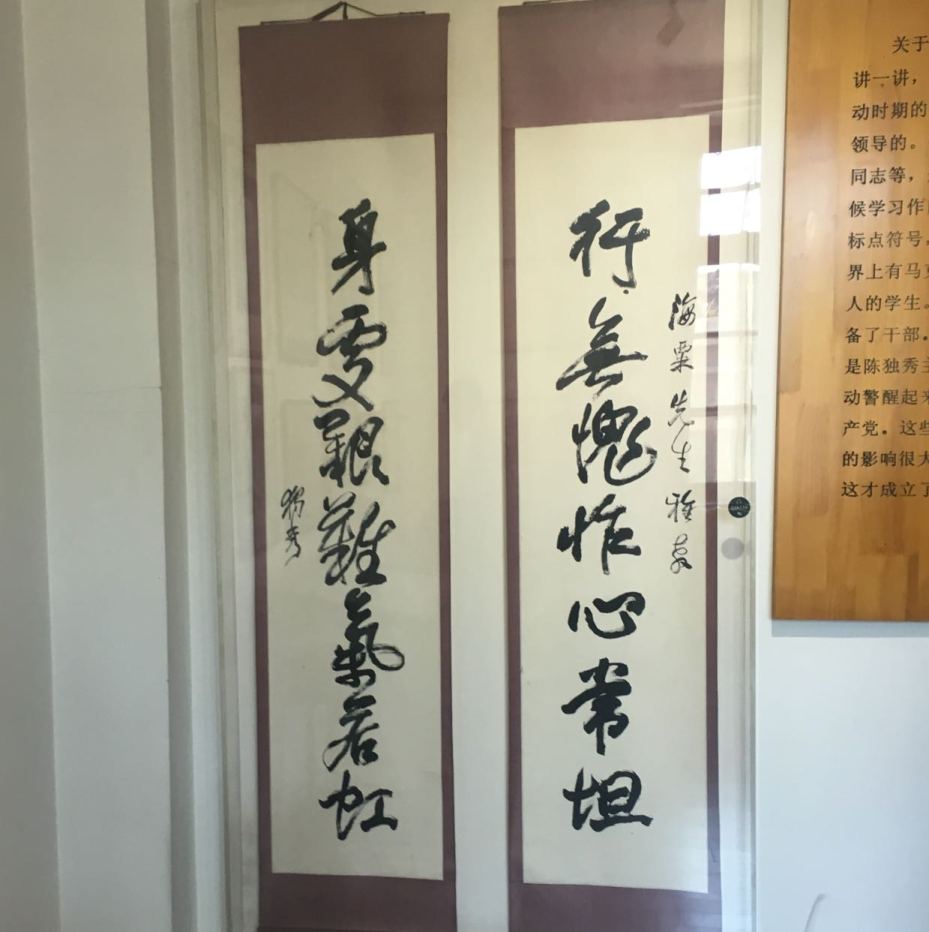 海粟先生雅教
行無愧怍心常坦
身處艱難氣若虹
獨秀
关于
讲一讲，
动时期的
领导的。
同志等，
候学习作
标点符号，
界上有马
人的学生。
备了干部。
是陈独秀
动警醒起来
产党。这些
的影响很大
这才成立了